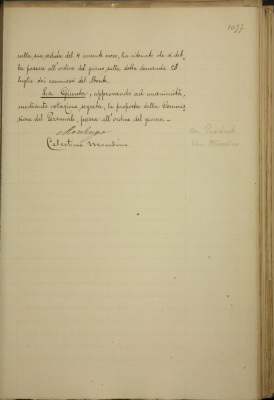 1077
nella sua seduta del 4 corrente mese, ha ritenuto che si deb_
ba passare all'ordine del giorno sulla detta domanda 28
luglio dei commessi del Monte.
La Giunta, approvando ad unanimità,
mediante votazione segreta, la proposta della Commis_
sione del Personale, passa all'ordine del giorno._
Celestino